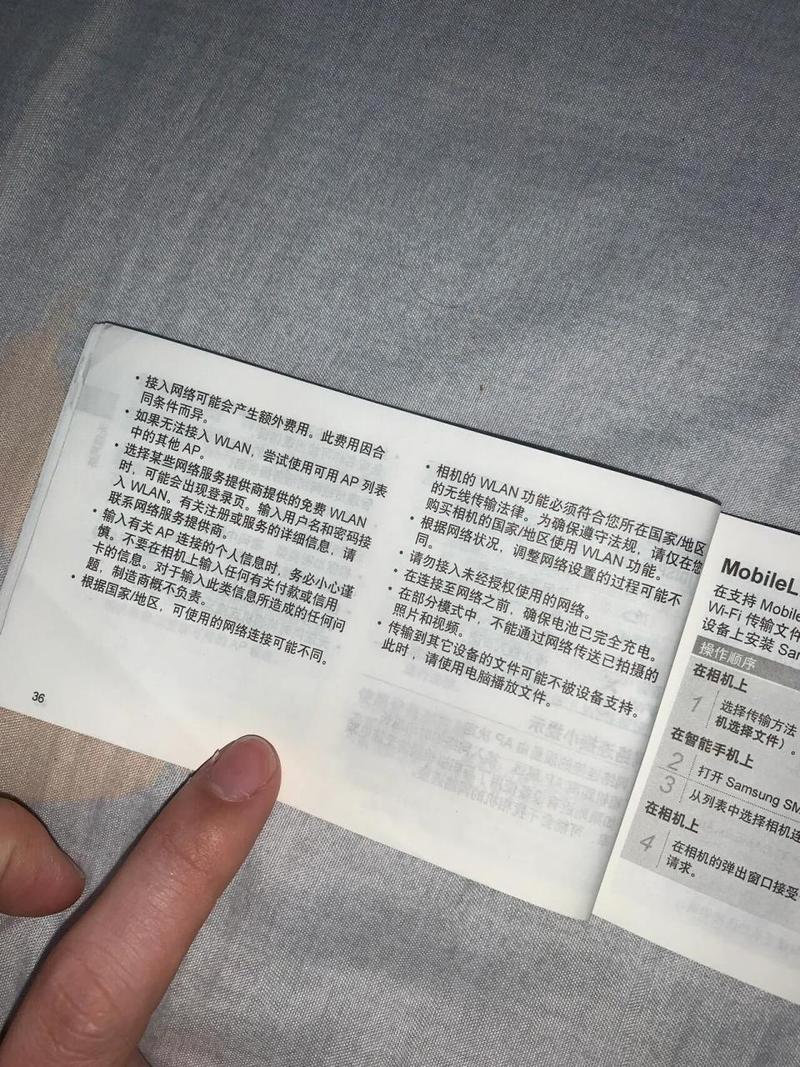 • 接入网络可能会产生额外费用。此费用因合
同条件而异。
• 如果无法接入 WLAN，尝试使用可用 AP 列表
中的其他 AP。
• 选择某些网络服务提供商提供的免费 WLAN
时，可能会出现登录页。输入用户名和密码接
入 WLAN。有关注册或服务的详细信息，请
联系网络服务提供商。
• 输入有关 AP 连接的个人信息时，务必小心谨
慎。不要在相机上输入任何有关付款或信用
卡的信息。对于输入此类信息所造成的任何问
题，制造商概不负责。
• 根据国家/地区，可使用的网络连接可能不同。
36
• 相机的 WLAN 功能必须符合您所在国家/地区
的无线传输法律。为确保遵守法规，请仅在您
购买相机的国家/地区使用 WLAN 功能。
• 根据网络状况，调整网络设置的过程可能不
同。
• 请勿接入未经授权使用的网络。
• 在连接至网络之前，确保电池已完全充电。
• 在部分模式中，不能通过网络传送已拍摄的
照片和视频。
• 传输到其它设备的文件可能不被设备支持。
此时，请使用电脑播放文件。
MobileL
在支持 Mobile
Wi-Fi 传输文件
设备上安装 Sam
操作顺序
在相机上
1 选择传输方法
机选择文件）。
在智能手机上
2 打开 Samsung SM
3 从列表中选择相机连
在相机上
4 在相机的弹出窗口接受
请求。